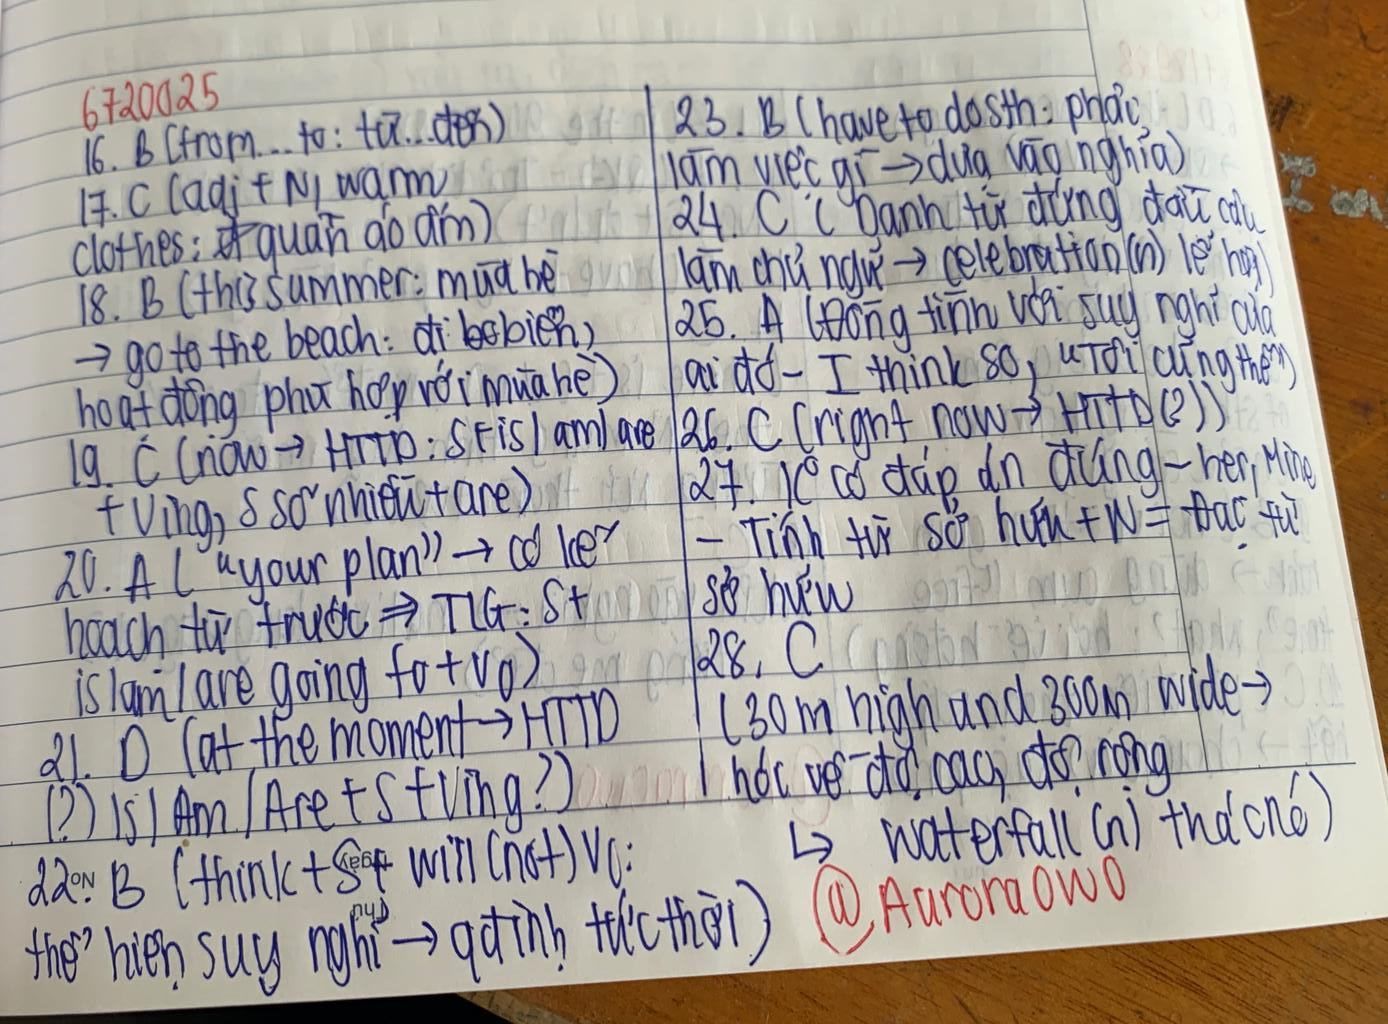 6720025
16. B (from... to: từ...đến)
17. C (adj + N, warm
clothes: quần áo ấm)
18. B (this summer: mùa hè
→ go to the beach: đi biển,
hoạt động phù hợp với mùa hè)
19. C (now → HTTD: S + is / am / are
+ Ving, S số nhiều + are)
20. A ( "your plan" → có kế
hoạch từ trước ⇒ TLG: S +
is / am / are going to + V0)
21. D (at the moment → HTTD
(?) Is / Am / Are + S + Ving?)
22. B (think + S + will (not) V0:
thể hiện suy nghĩ → qđịnh tức thời)
23. B (have to do sth: phải
làm việc gì → dựa vào nghĩa)
24. C ( Danh từ đứng đầu câu
làm chủ ngữ → celebration (n) lễ hội)
25. A (Đồng tình với suy nghĩ của
ai đó - I think so, "Tôi cũng thế")
26. C (right now → HTTD (?))
27. K có đáp án đúng - her, Mine
- Tính từ sở hữu + N = Đại từ
sở hữu
28. C
(30m high and 300m wide →
nói về độ cao, độ rộng
↳ waterfall (n) thác nc)
@AuroraOwO